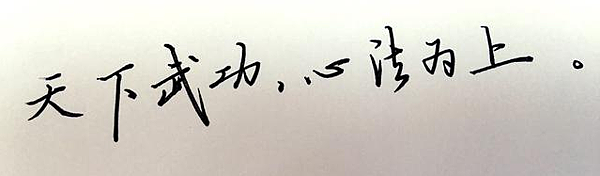 天下武功，心法为上。